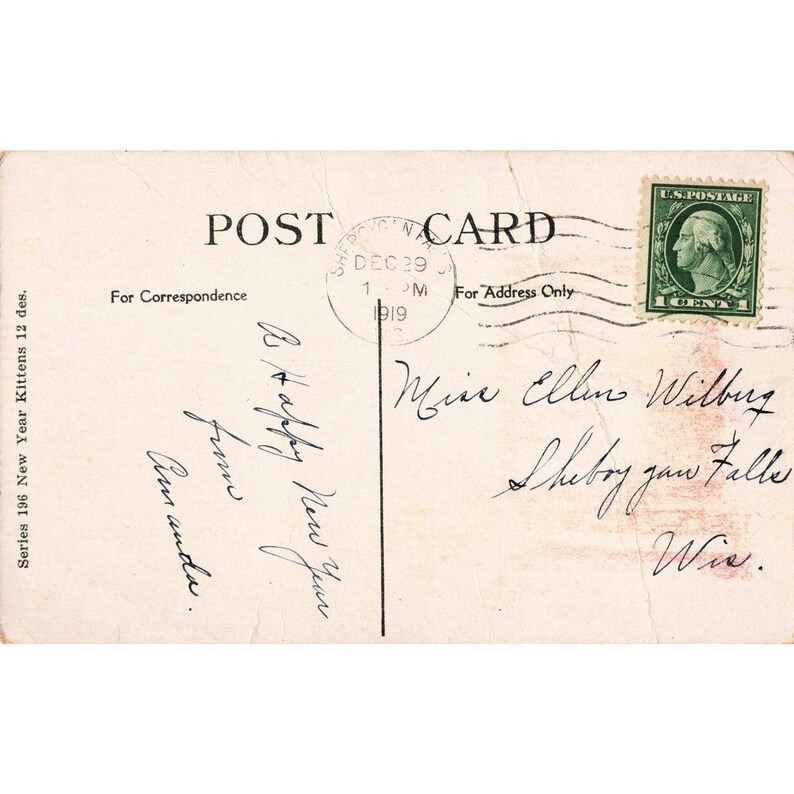 POST CARD
SHEBOYGAN FALLS
DEC 29
1 - PM
1919
WIS
U.S. POSTAGE
1 CENT 1
For Correspondence
For Address Only
A Happy New Year
from
Amanda.
Miss Ellen Wilberg
Sheboygan Falls
Wis.
Series 196 New Year Kittens 12 des.